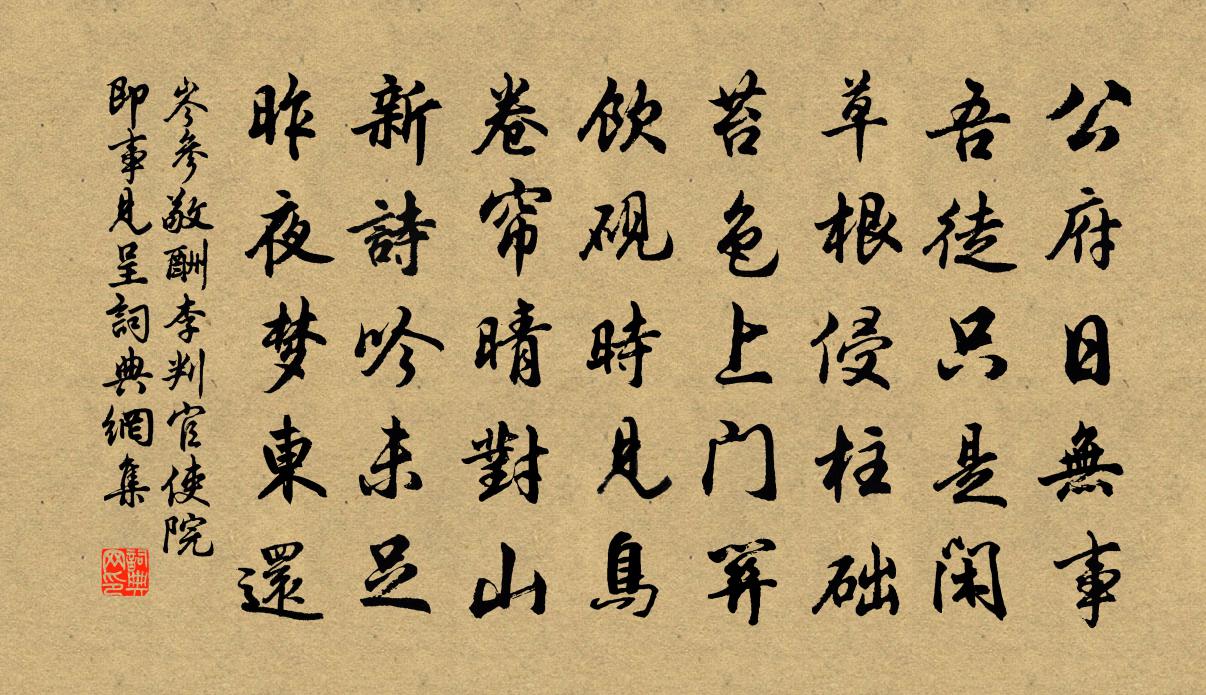 公府日無事
吾徒只是閑
草根侵柱础
苔色上门關
飲硯時見鳥
卷帘晴對山
新詩吟未足
昨夜梦東還
岑參敬酬李判官使院
即事見呈詞典網集
詞典网印